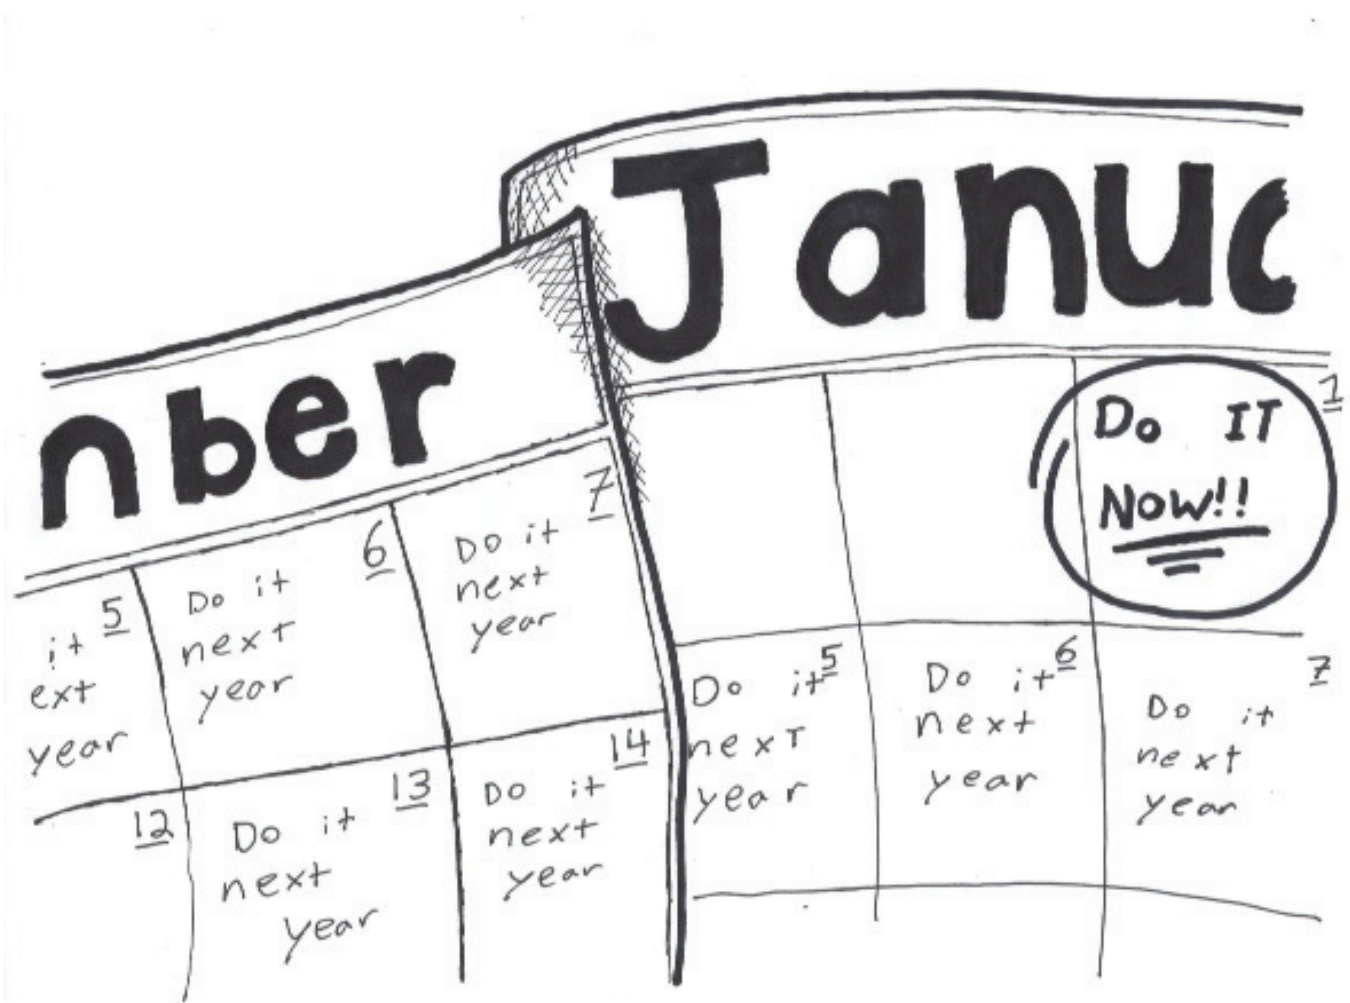 nber
5
it
ext
year
6
Do it
next
year
7
Do it
next
year
12
13
Do it
next
year
14
Do it
next
year
Janua
1
Do IT
Now!!
5
Do it
next
year
6
Do it
next
year
7
Do it
next
year